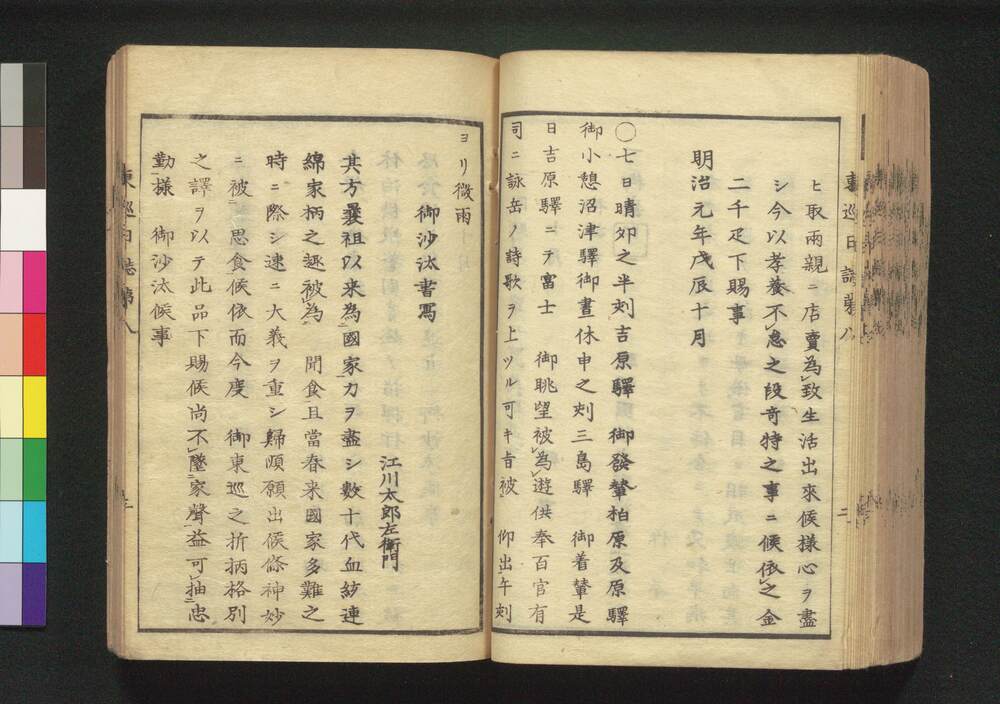 東巡日誌第八
ヒ取兩親ニ店賣為致生活出來候様心ヲ盡
シ今以孝養不怠之段奇特之事ニ候依之金
二千疋下賜事
明治元年戊辰十月
〇七日晴夘之半刻吉原驛御發輦柏原及原驛
御小憩沼津驛御晝休申之刻三島驛 御着輦是
日吉原驛ニテ富士 御眺望被為遊供奉百官有
司ニ詠岳ノ詩歌ヲ上ツル可キ旨被 仰出午刻
ヨリ微雨
御沙汰書寫
江川太郎左衛門
其方曩祖以来為國家力ヲ盡シ數十代血統連
綿家柄之趣被為 聞食且當春来國家多難之
時ニ際シ速ニ大義ヲ重シ歸順願出候條神妙
ニ被 思食候依而今度 御東巡之折柄格別
之譯ヲ以テ此品下賜候尚不墜家聲益可抽忠
勤様 御沙汰候事
東巡日誌第八